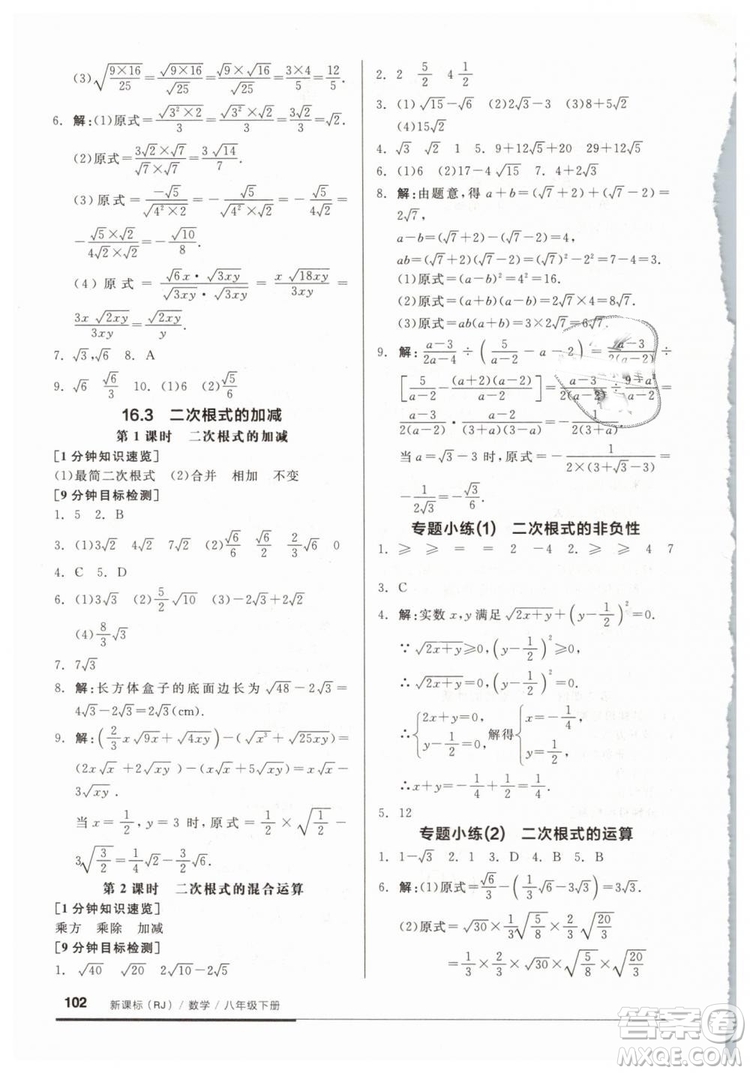 (3)√(9×16/25)=√(9×16)/√25=(√9×√16)/√25=(3×4)/5=12/5.
6. 解:(1)原式=√(3²×2)/3=(√3²×√2)/3=3√2/3=√2.
(2)原式=(3√2×√7)/(√7×√7)=3√14/7.
(3)原式=-√5/(√4²×√2)=-√5/(4√2)=
-(√5×√2)/(4√2×√2)=-√10/8.
(4)原式=(√6x·√3xy)/(√3xy·√3xy)=x√18xy/3xy=
3x√2xy/3xy=√2xy/y.
7. √3 8. A
9. √6 √6/3 10. (1)√6 (2)√5/6
16.3 二次根式的加减
第1课时 二次根式的加减
[1分钟知识速览]
(1)最简二次根式 (2)合并 相加 不变
[9分钟目标检测]
1. 5 2. B
3. (1)3√2 4√2 7√2 (2)√6/6 √6/2 √6/6 0
4. C 5. D
6. (1)3√3 (2)5/2√2 (3)2√10
(4)8/3√3
7. 7√3
8. 解:长方体盒子的底面边长为√48-2√3=
4√3-2√3=2√3(cm).
9. 解:(2/3x√9x+√4xy)-(√x³+√25xy)=
(2x√x+2√xy)-(x√x+5√xy)=x√x-3√xy.
当x=1/2,y=3时,原式=1/2×√(1/2)-
3√(3/2)=√2/4-3√6/2.
第2课时 二次根式的混合运算
[1分钟知识速览]
乘方 乘除 加减
[9分钟目标检测]
1. √40 √20 2√10 2√5
102 新课标(RJ)/数学/八年级下册
2. 2 5/2 4 1/2
3. (1)√15-√6 (2)9√2 (3)√6+√2
(4)15√2
4. √3 √2 1 5. 9+12√5+20 29+12√5
6. (1)6 (2)17-4√15 7. 7√3
8. 解:由题意,得a+b=(√7+2)+(√7-2)=
2√7,
a-b=(√7+2)-(√7-2)=4,
ab=(√7+2)(√7-2)=(√7)²-2²=7-4=3.
(1)原式=(a-b)²=4²=16.
(2)原式=(a+b)(a-b)=2√7×4=8√7.
(3)原式=ab(a+b)=3×2√7=6√7.
9. 解:(a-3)/(2a-4)÷(5/(a-2)-a-2)=(a-3)/(2(a-2))÷
[5/(a-2)-(a+2)(a-2)/(a-2)]=
·(a-2)/((3+a)(3-a))=-1/(2(3+a)).
当a=√3-3时,原式=-1/(2×(3+√3-3))=
-1/(2√3)=-√3/6.
专题小练(1) 二次根式的非负性
1. ≥ ≥ = = 2 2. ≥ ≥ ≥ 4 7
3. C
4. 解:实数x,y满足√(2x+y)+(y-1/2)²=0.
∵√(2x+y)≥0,(y-1/2)²≥0,
∴√(2x+y)=0,(y-1/2)²=0.
∴{2x+y=0, y-1/2=0, 解得{x=-1/4, y=1/2.
∴x+y=-1/4+1/2=1/4.
5. 12
专题小练(2) 二次根式的运算
1. 1-√3 2. 1 3. D 4. B 5. B
6. 解:(1)原式=√6/√3-(√2+1-3√3+3√3)=
√2-√2-1=-1.
(2)原式=√30×√(5/8)×√(20/3)=
√(30×5/8×20/3)=5√5.
答案卷